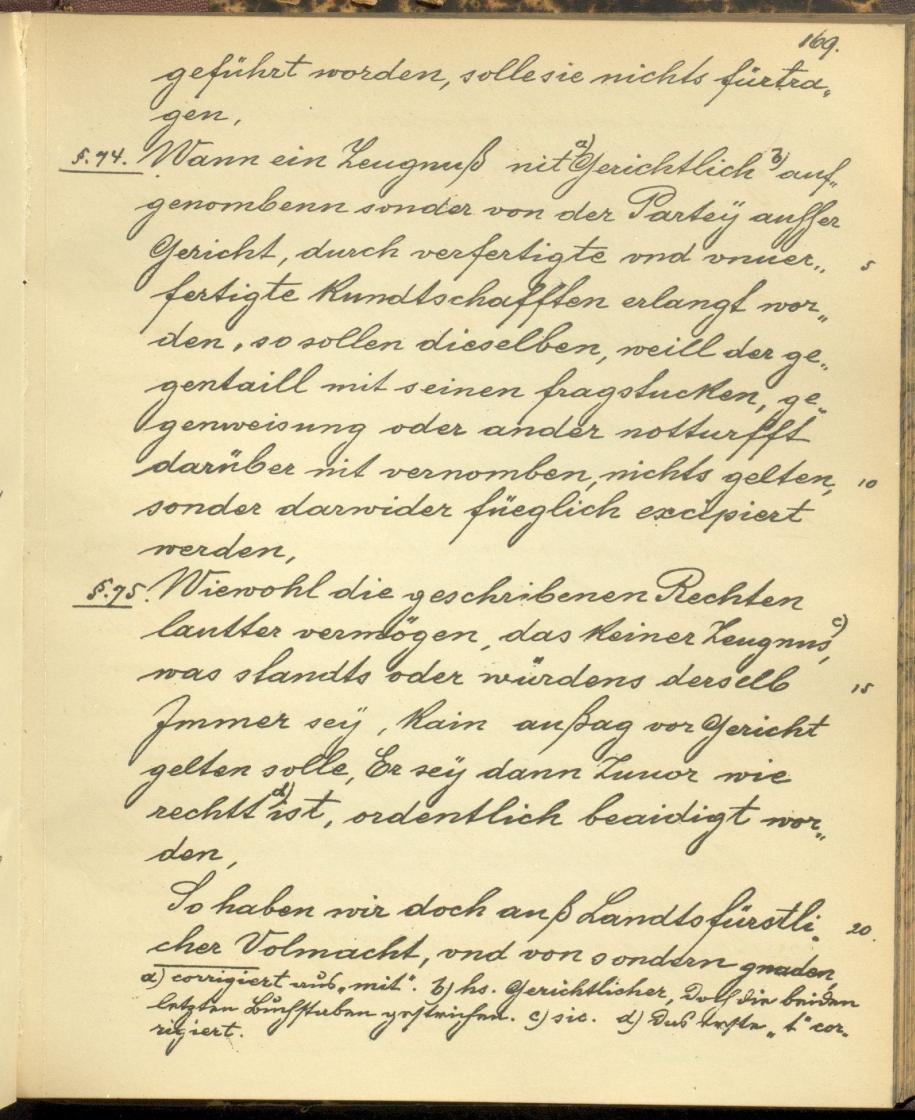 169.
geführt worden, solle sie nichts fürtra„
gen,
§. 74. Wann ein Zeugnuß nit a) Gerichtlich b) auf„
genombenn sonder von der Parteÿ ausser
Gericht, durch verfertigte vnd vnuer„ 5
fertigte Kundtschafften erlangt wor„
den, so sollen dieselben, weill der ge„
gentaill mit seinen fragstucken, ge„
genweisung oder ander notturfft
darüber nit vernomben, nichts gelten, 10
sonder darwider füeglich excipiert
werden,
§. 75. Wiewohl die geschribenen Rechten
lautter vermögen, das keiner Zeugnus c),
was standts oder würdens derselb 15
Immer seÿ, kain außag vor Gericht
gelten solle, Er seÿ dann Zuuor wie
rechtt d) ist, ordentlich beaidigt wor„
den,
So haben wir doch auß Landtsfürstli„ 20.
cher Volmacht, vnd von sondern gnaden,
a) corrigiert aus „mit“. b) hs. Gerichtlicher, doch die beiden
letzten Buchstaben gestrichen. c) sic. d) Das erste „t“ cor„
rigiert.